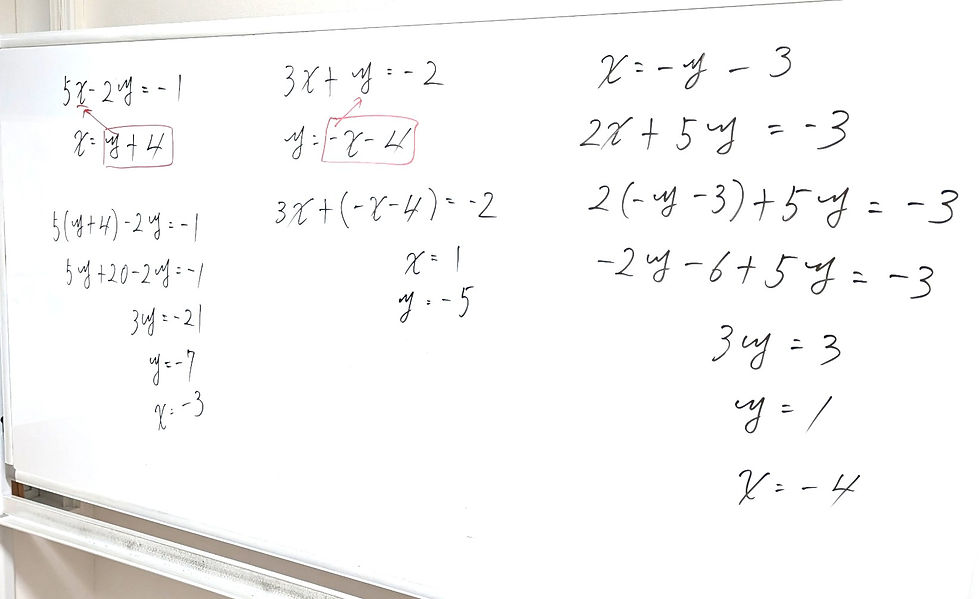 5x-2y=-1
x=y+4
5(y+4)-2y=-1
5y+20-2y=-1
3y=-21
y=-7
x=-3
3x+y=-2
y=-x-4
3x+(-x-4)=-2
x=1
y=-5
x=-y-3
2x+5y=-3
2(-y-3)+5y=-3
-2y-6+5y=-3
3y=3
y=1
x=-4